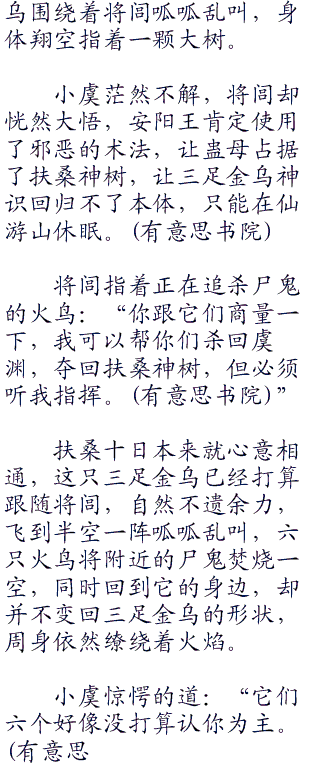 乌围绕着将闾呱呱乱叫，身
体翔空指着一颗大树。
小虞茫然不解，将闾却
恍然大悟，安阳王肯定使用
了邪恶的术法，让蛊母占据
了扶桑神树，让三足金乌神
识回归不了本体，只能在仙
游山休眠。(有意思书院)
将闾指着正在追杀尸鬼
的火鸟：“你跟它们商量一
下，我可以帮你们杀回虞
渊，夺回扶桑神树，但必须
听我指挥。(有意思书院)”
扶桑十日本来就心意相
通，这只三足金乌已经打算
跟随将闾，自然不遗余力，
飞到半空一阵呱呱乱叫，六
只火鸟将附近的尸鬼焚烧一
空，同时回到它的身边，却
并不变回三足金乌的形状，
周身依然缭绕着火焰。
小虞惊愕的道：“它们
六个好像没打算认你为主。
(有意思